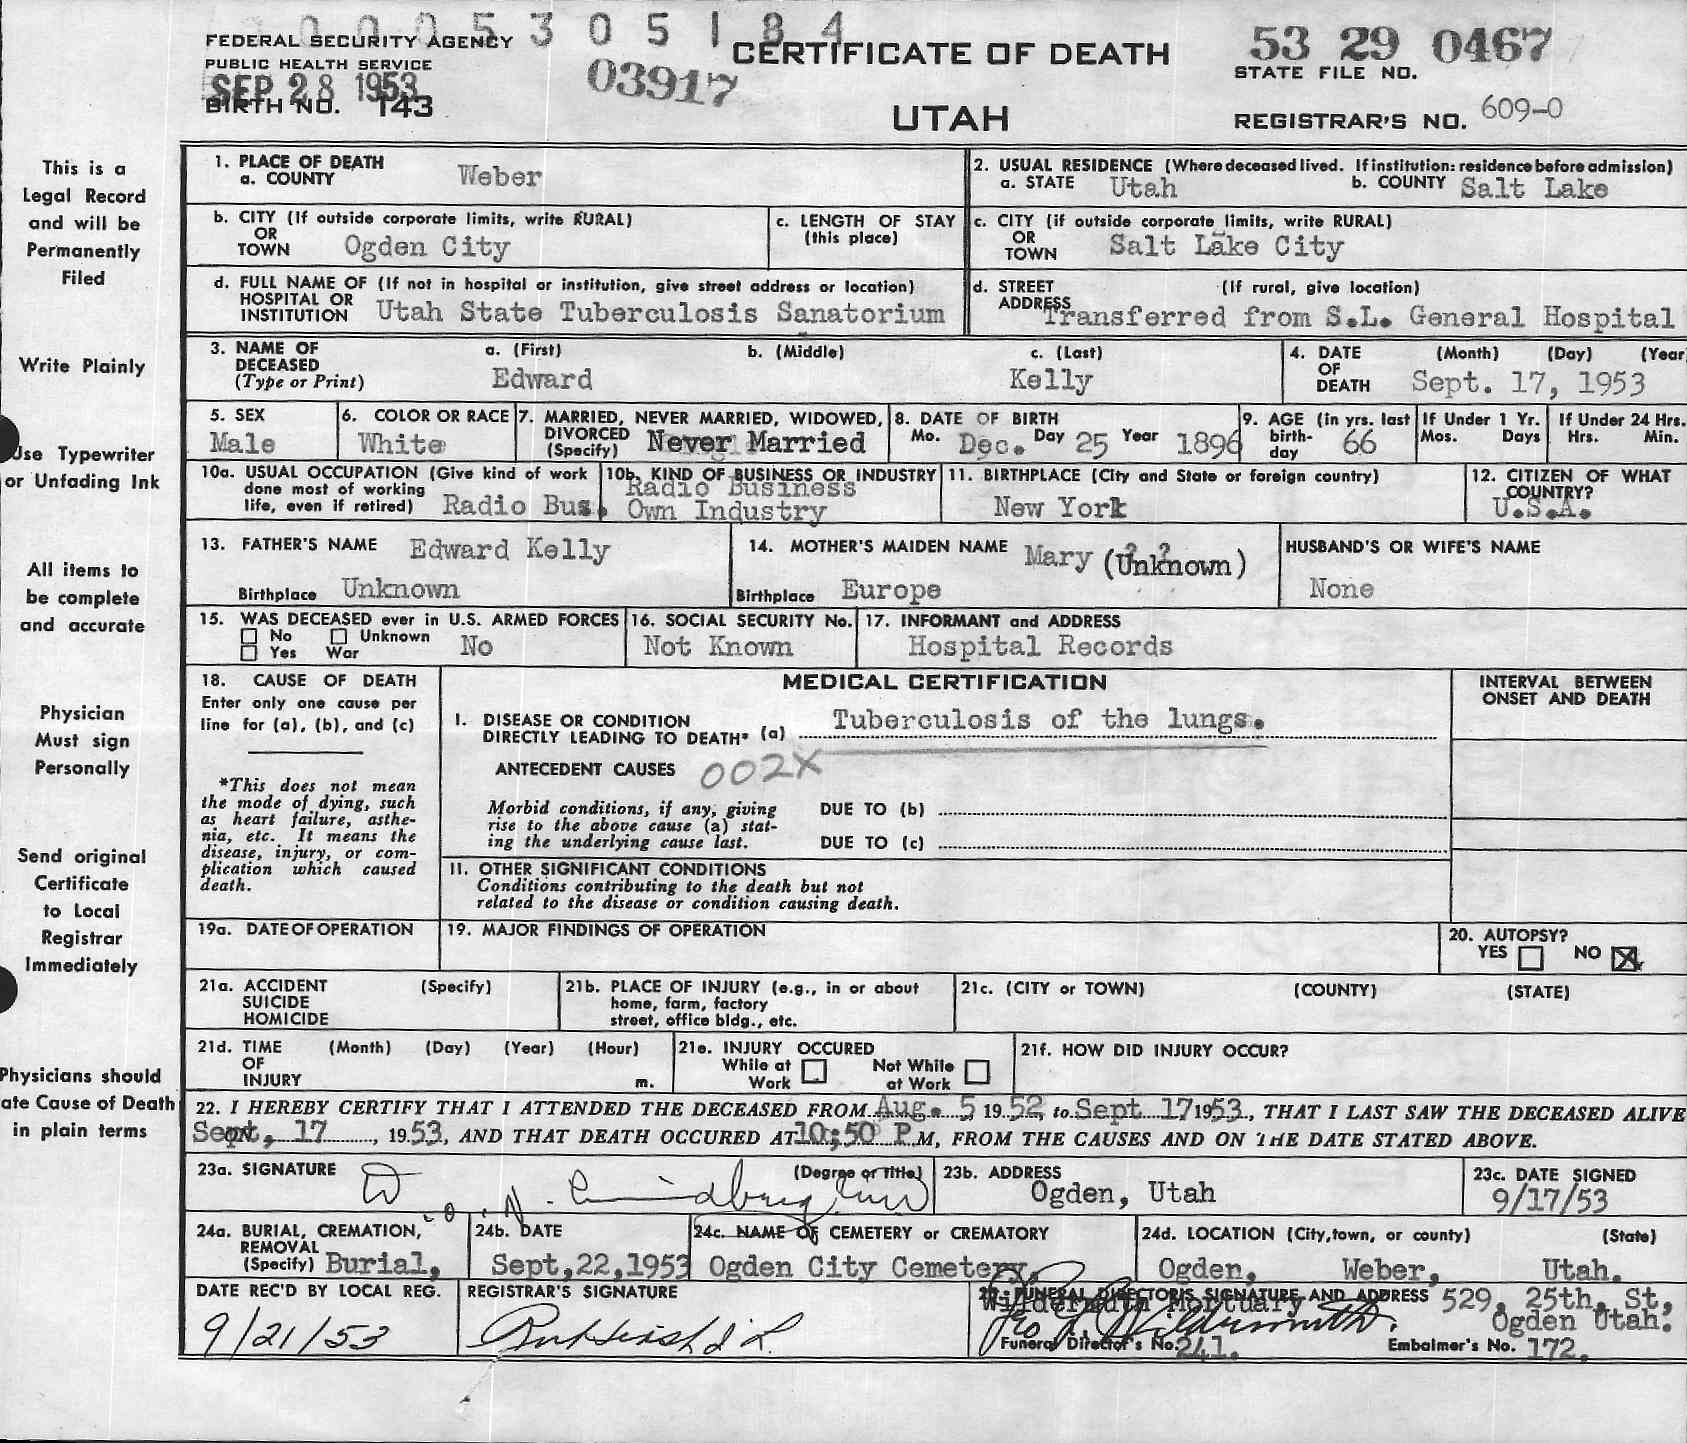 0005305184
FEDERAL SECURITY AGENCY
PUBLIC HEALTH SERVICE
SEP 28 1953
BIRTH NO. 143
03917
CERTIFICATE OF DEATH
UTAH
53 29 0467
STATE FILE NO.
REGISTRAR'S NO. 609-0
This is a
Legal Record
and will be
Permanently
Filed
Write Plainly
Use Typewriter
or Unfading Ink
All items to
be complete
and accurate
Physician
Must sign
Personally
Send original
Certificate
to Local
Registrar
Immediately
Physicians should
ate Cause of Death
in plain terms
1. PLACE OF DEATH
a. COUNTY Weber
2. USUAL RESIDENCE (Where deceased lived. If institution: residence before admission)
a. STATE Utah b. COUNTY Salt Lake
b. CITY (If outside corporate limits, write RURAL)
OR
TOWN Ogden City
c. LENGTH OF STAY
(this place)
c. CITY (if outside corporate limits, write RURAL)
OR
TOWN Salt Lake City
d. FULL NAME OF (If not in hospital or institution, give street address or location)
HOSPITAL OR
INSTITUTION Utah State Tuberculosis Sanatorium
d. STREET (If rural, give location)
ADDRESS Transferred from S.L. General Hospital
3. NAME OF a. (First) b. (Middle) c. (Last)
DECEASED
(Type or Print) Edward Kelly
4. DATE (Month) (Day) (Year
OF
DEATH Sept. 17, 1953
5. SEX
Male
6. COLOR OR RACE
White
7. MARRIED, NEVER MARRIED, WIDOWED,
DIVORCED
(Specify) Never Married
8. DATE OF BIRTH
Mo. Dec. Day 25 Year 1896
9. AGE (in yrs. last
birth-
day 66
If Under 1 Yr.
Mos. Days
If Under 24 Hrs.
Hrs. Min.
10a. USUAL OCCUPATION (Give kind of work
done most of working
life, even if retired) Radio Bus.
10b. KIND OF BUSINESS OR INDUSTRY
Radio Business
Own Industry
11. BIRTHPLACE (City and State or foreign country)
New York
12. CITIZEN OF WHAT
COUNTRY?
U.S.A.
13. FATHER'S NAME Edward Kelly
Birthplace Unknown
14. MOTHER'S MAIDEN NAME Mary (Unknown)
Birthplace Europe
HUSBAND'S OR WIFE'S NAME
None
15. WAS DECEASED ever in U.S. ARMED FORCES
No Unknown
Yes War No
16. SOCIAL SECURITY No.
Not Known
17. INFORMANT and ADDRESS
Hospital Records
18. CAUSE OF DEATH
Enter only one cause per
line for (a), (b), and (c)
*This does not mean
the mode of dying, such
as heart failure, asthe-
nia, etc. It means the
disease, injury, or com-
plication which caused
death.
MEDICAL CERTIFICATION
I. DISEASE OR CONDITION
DIRECTLY LEADING TO DEATH* (a) Tuberculosis of the lungs.
ANTECEDENT CAUSES 002X
Morbid conditions, if any, giving
rise to the above cause (a) stat-
ing the underlying cause last.
DUE TO (b)
DUE TO (c)
II. OTHER SIGNIFICANT CONDITIONS
Conditions contributing to the death but not
related to the disease or condition causing death.
INTERVAL BETWEEN
ONSET AND DEATH
19a. DATE OF OPERATION
19. MAJOR FINDINGS OF OPERATION
20. AUTOPSY?
YES NO X
21a. ACCIDENT (Specify)
SUICIDE
HOMICIDE
21b. PLACE OF INJURY (e.g., in or about
home, farm, factory
street, office bldg., etc.
21c. (CITY or TOWN) (COUNTY) (STATE)
21d. TIME (Month) (Day) (Year) (Hour)
OF
INJURY m.
21e. INJURY OCCURED
While at
Work
Not While
at Work
21f. HOW DID INJURY OCCUR?
22. I HEREBY CERTIFY THAT I ATTENDED THE DECEASED FROM Aug. 5 1952, to Sept 17 1953, THAT I LAST SAW THE DECEASED ALIVE
on Sept, 17, 1953, AND THAT DEATH OCCURED AT 10;50 P.M, FROM THE CAUSES AND ON THE DATE STATED ABOVE.
23a. SIGNATURE (Degree or Title)
23b. ADDRESS
Ogden, Utah
23c. DATE SIGNED
9/17/53
24a. BURIAL, CREMATION,
REMOVAL
(Specify) Burial,
24b. DATE
Sept,22,1953
24c. NAME OF CEMETERY or CREMATORY
Ogden City Cemetery,
24d. LOCATION (City,town, or county) (State)
Ogden, Weber, Utah.
DATE REC'D BY LOCAL REG.
9/21/53
REGISTRAR'S SIGNATURE
25. FUNERAL DIRECTOR'S SIGNATURE AND ADDRESS 529, 25th, St,
Wildermuth Mortuary
Ogden Utah.
Geo J. Wildermuth.
Funeral Director's No. 241. Embalmer's No. 172.